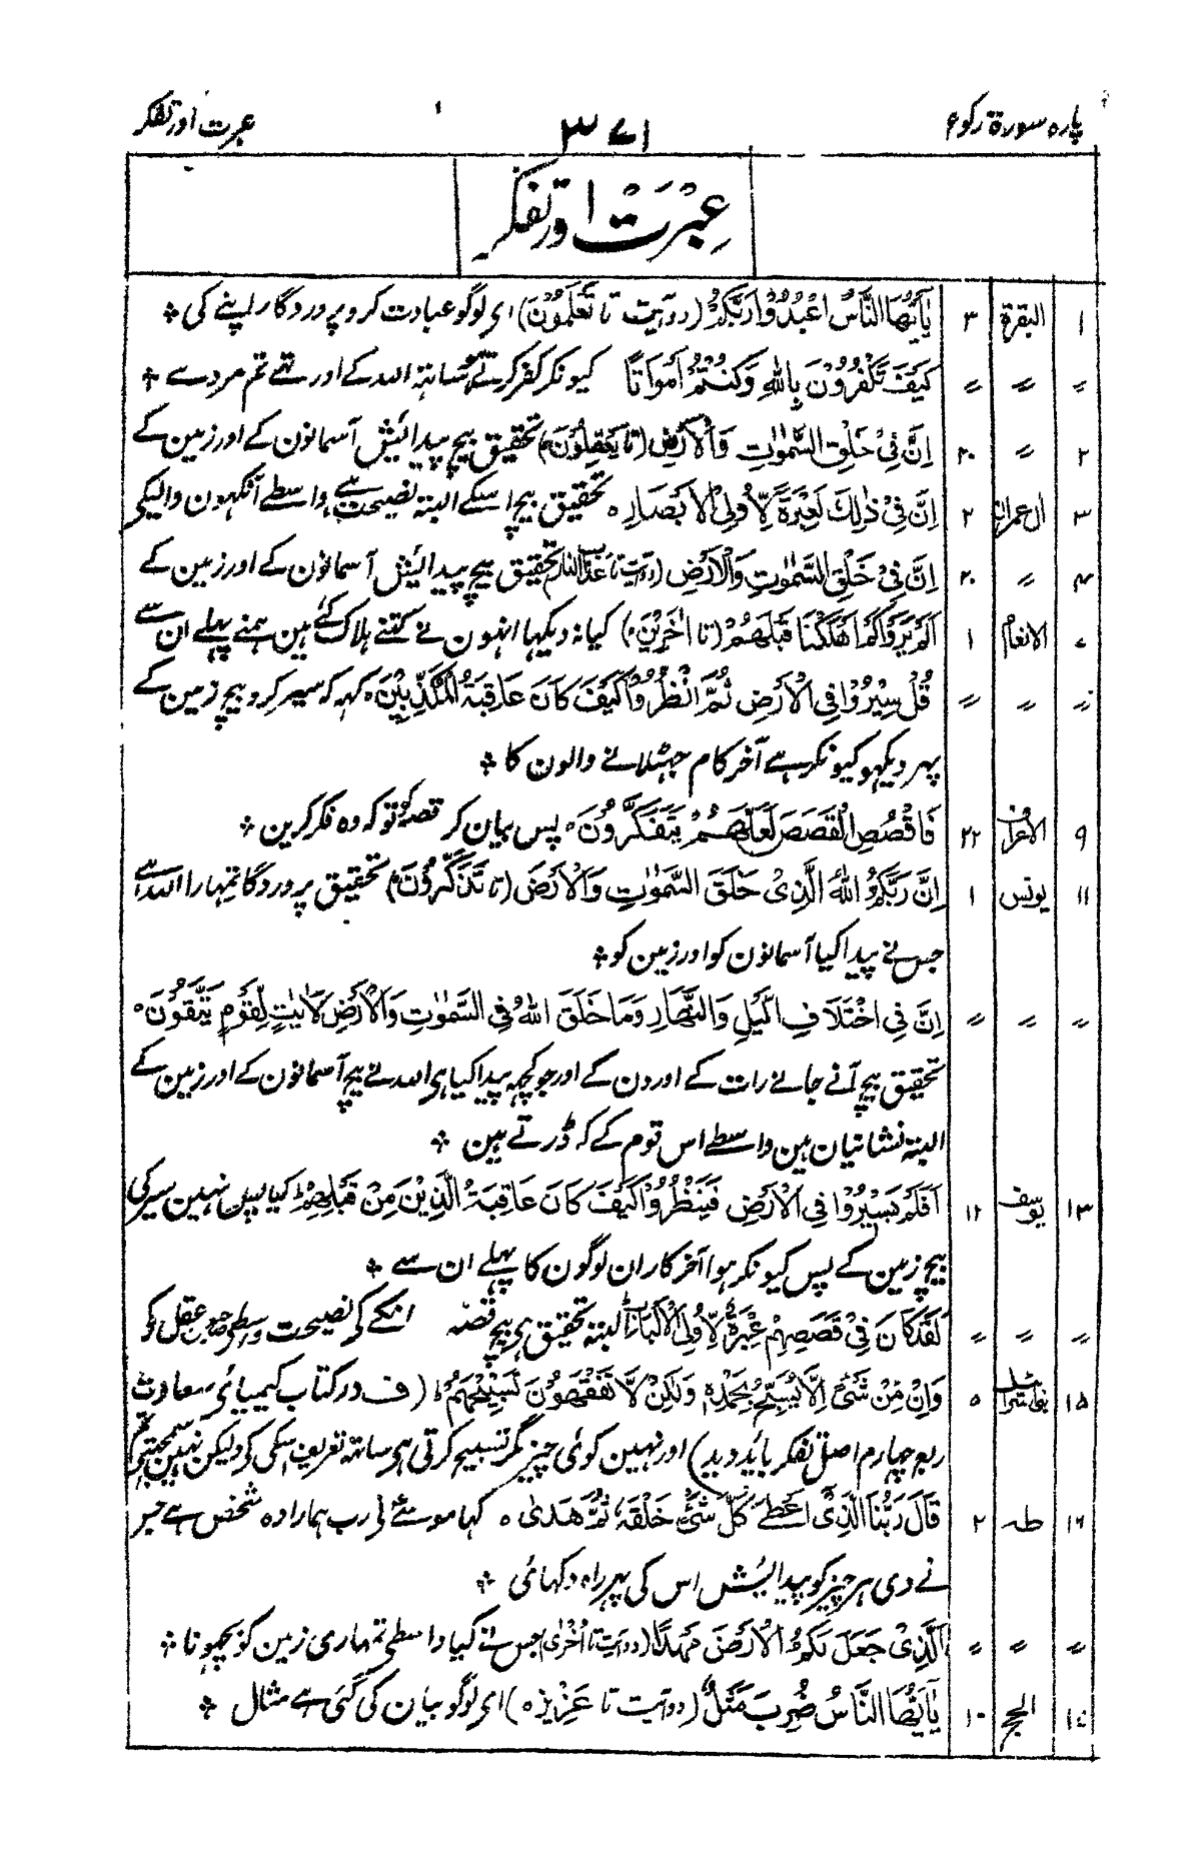 پارہ سورۃ رکوع ۳۷۱ عبرت اور تفکر
عِبْرَتْ اور تفکر
۱ البقرۃ ۳ یٰۤاَیُّهَا النَّاسُ اعْبُدُوْا رَبَّكُمُ (دو آیت تا تَعْلَمُوْنَ) ای لوگو عبادت کرو پروردگار اپنے کی ❖
〃 〃 〃 كَيْفَ تَكْفُرُوْنَ بِاللّٰهِ وَكُنْتُمْ اَمْوَاتًا کیونکر کفر کرتے ہو ساتہہ اللہ کے اور تہے تم مردے ❖
۲ 〃 ۲۰ اِنَّ فِیْ خَلْقِ السَّمٰوٰتِ وَالْاَرْضِ (تا يَعْقِلُوْنَ) تحقیق بیچ پیدائیش آسمانوں کے اور زمین کے
۳ اٰل عمران ۲ اِنَّ فِیْ ذٰلِكَ لَعِبْرَةً لِّاُولِی الْاَبْصَارِ ہ تحقیق بیچ اسکے البتہ نصیحت ہے واسطے آنکہون والیکے
۴ 〃 ۲۰ اِنَّ فِیْ خَلْقِ السَّمٰوٰتِ وَالْاَرْضِ (دو آیت تا عذاب النار) تحقیق بیچ پیدائیش آسمانون کے اور زمین کے
۷ الانعام ۱ اَلَمْ يَرَوْا كَمْ اَهْلَكْنَا قَبْلَهُمْ (تا اٰخَرِيْنَ) کیا نہ دیکہا انہون نے کتنے ہلاک کئے ہین ہمنے پہلے ان سے
〃 〃 〃 قُلْ سِيْرُوْا فِی الْاَرْضِ ثُمَّ انْظُرُوْا كَيْفَ كَانَ عَاقِبَةُ الْمُكَذِّبِيْنَ ہ کہہ کہ سیر کرو بیچ زمین کے
پہر دیکہو کیونکر ہے آخر کام جہٹلانے والون کا ❖
۹ الاعراف ۲۲ فَاقْصُصِ الْقَصَصَ لَعَلَّهُمْ يَتَفَكَّرُوْنَ ہ پس بیان کر قصہ کو تو کہ وہ فکر کرین ❖
۱۱ یونس ۱ اِنَّ رَبَّكُمُ اللّٰهُ الَّذِیْ خَلَقَ السَّمٰوٰتِ وَالْاَرْضَ (تا تَذَكَّرُوْنَ) تحقیق پروردگار تمہارا اللہ ہے
جس نے پیدا کیا آسمانون کو اور زمین کو ❖
〃 〃 〃 اِنَّ فِی اخْتِلَافِ الَّيْلِ وَالنَّهَارِ وَمَا خَلَقَ اللّٰهُ فِی السَّمٰوٰتِ وَالْاَرْضِ لَاٰيٰتٍ لِّقَوْمٍ يَّتَّقُوْنَ ہ
تحقیق بیچ آنے جانے رات کے اور دن کے اور جو کچہہ پیدا کیا ہی اللہ نے بیچ آسمانون کے اور زمین کے
البتہ نشانیان ہین واسطے اس قوم کے کہ ڈرتے ہین ❖
۱۳ یوسف ۱۲ اَفَلَمْ يَسِيْرُوْا فِی الْاَرْضِ فَيَنْظُرُوْا كَيْفَ كَانَ عَاقِبَةُ الَّذِيْنَ مِنْ قَبْلِهِمْ کیا پس نہین سیر کی
بیچ زمین کے پس کیونکر ہوا آخر کار ان لوگون کا پہلے ان سے ❖
〃 〃 〃 لَقَدْ كَانَ فِیْ قَصَصِهِمْ عِبْرَةٌ لِّاُولِی الْاَلْبَابِ البتہ تحقیق ہی بیچ قصہ انکے کی نصیحت واسطے صاحب عقل کو
۱۵ بنی اسرائیل ۵ وَاِنْ مِّنْ شَیْءٍ اِلَّا يُسَبِّحُ بِحَمْدِهٖ وَلٰكِنْ لَّا تَفْقَهُوْنَ تَسْبِيْحَهُمْ (ف در کتاب کیمیائی سعادت
ربع چہارم اصل تفکر باید دید) اور نہین کوئی چیز مگر تسبیح کرتی ہی ساتہہ تعریف اسکی کو ولیکن نہین سمجہتے تم
۱۶ طہ ۲ قَالَ رَبُّنَا الَّذِیْ اَعْطٰى كُلَّ شَیْءٍ خَلْقَهٗ ثُمَّ هَدٰى ہ کہا موسٰے نے رب ہمارا وہ شخص ہے جس
نے دی ہر چیز کو پیدائیش اس کی پہر راہ دکہائی ❖
〃 〃 〃 الَّذِیْ جَعَلَ لَكُمُ الْاَرْضَ مَهْدًا (دو آیت تا اُخْرٰى) جس نے کیا واسطے تمہاری زمین کو بچہونا ❖
۱۷ الحج ۱۰ يٰۤاَيُّهَا النَّاسُ ضُرِبَ مَثَلٌ (دو آیت تا عَزِيْزٌ ہ) ای لوگو بیان کی گئی ہے مثال ❖